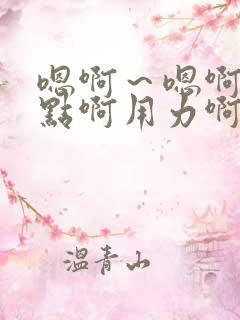 嗯啊～嗯啊
點啊用力啊
溫青山